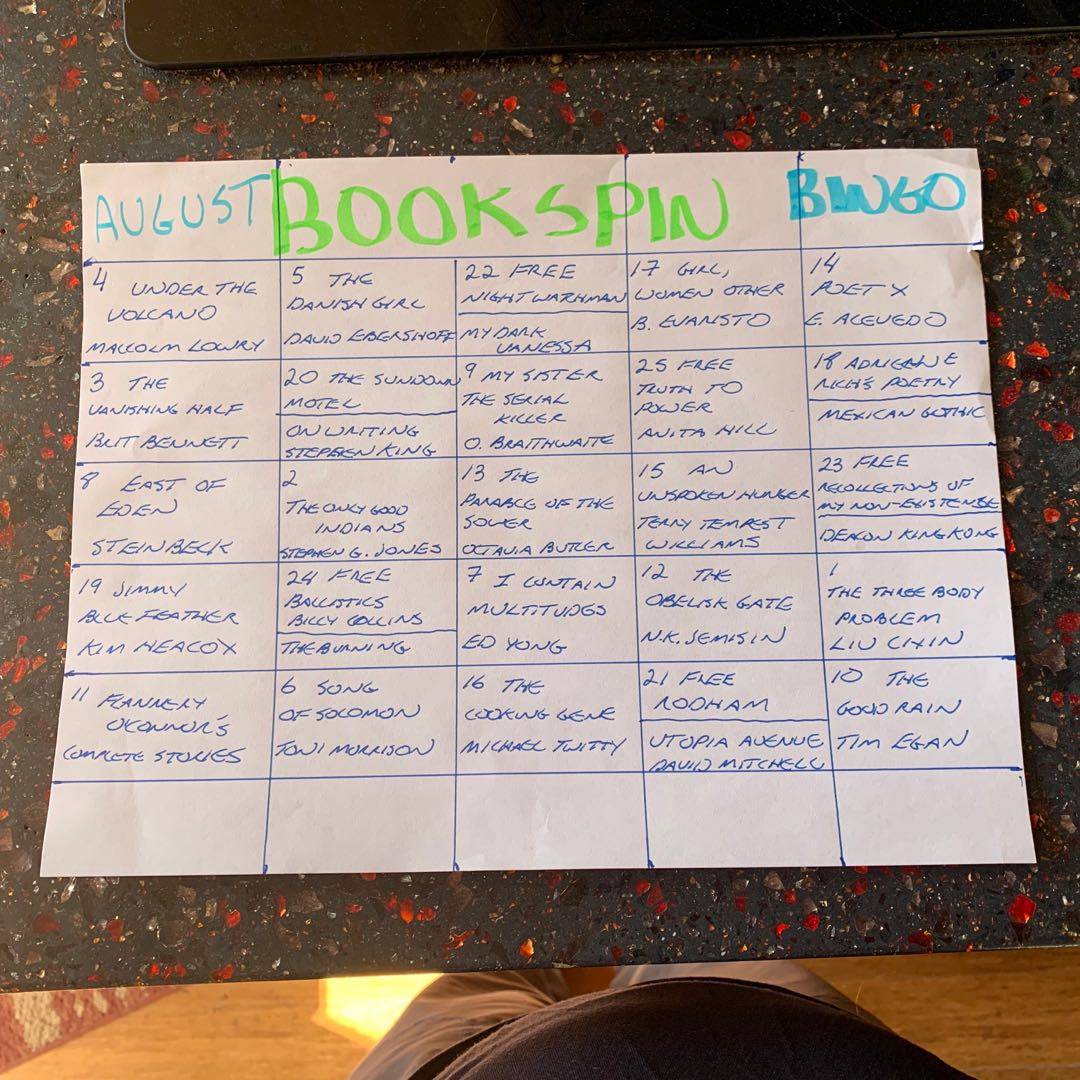 AUGUST BOOKSPIN BINGO
4 UNDER THE
VOLCANO
MALCOLM LOWRY
5 THE
DANISH GIRL
DAVID EBERSHOFF
22 FREE
NIGHT WATCHMAN
MY DARK
VANESSA
17 GIRL,
WOMEN OTHER
B. EVARISTO
14
POET X
E. ACEVEDO
3 THE
VANISHING HALF
BRIT BENNETT
20 THE SUNDOWN
MOTEL
ON WRITING
STEPHEN KING
9 MY SISTER
THE SERIAL
KILLER
O. BRAITHWAITE
25 FREE
TRUTH TO
POWER
ANITA HILL
18 ADRIENNE
RICH'S POETRY
MEXICAN GOTHIC
8 EAST OF
EDEN
STEINBECK
2
THE ONLY GOOD
INDIANS
STEPHEN G. JONES
13 THE
PARABLE OF THE
SOWER
OCTAVIA BUTLER
15 AN
UNSPOKEN HUNGER
TERRY TEMPEST
WILLIAMS
23 FREE
RECOLLECTIONS OF
MY NON-EXISTENSE
DEACON KING KONG
19 JIMMY
BLUEFEATHER
KIM HEACOX
24 FREE
BALLISTICS
BILLY COLLINS
THE BURNING
7 I CONTAIN
MULTITUDES
ED YONG
12 THE
OBELISK GATE
N.K. JEMISIN
1
THE THREE BODY
PROBLEM
LIU CIXIN
11 FLANNERY
O'CONNOR'S
COMPLETE STORIES
6 SONG
OF SOLOMON
TONI MORRISON
16 THE
COOKING GENE
MICHAEL TWITTY
21 FREE
RODHAM
UTOPIA AVENUE
DAVID MITCHELL
10 THE
GOOD RAIN
TIM EGAN